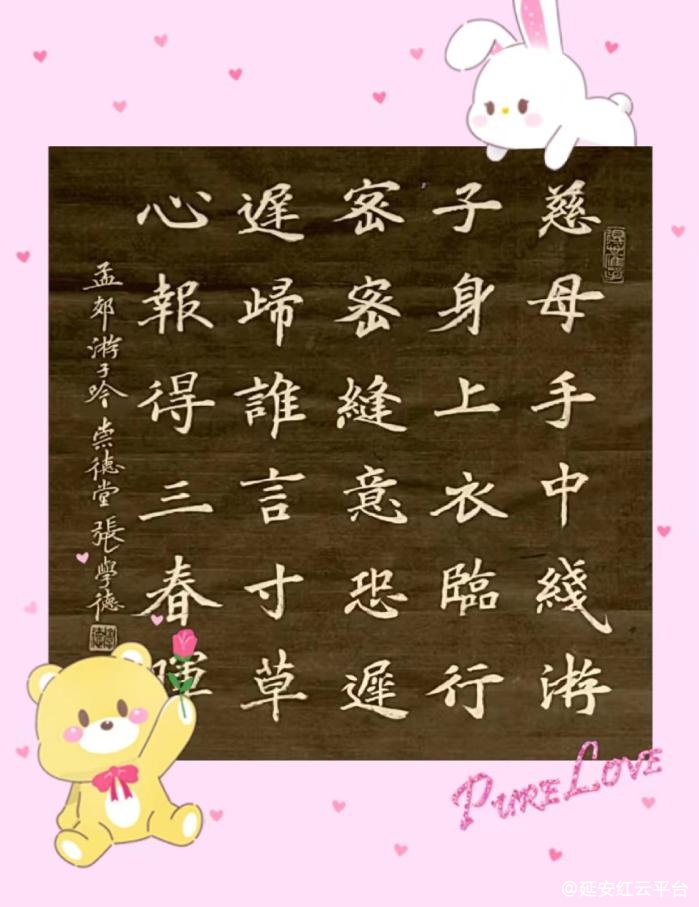 慈母手中綫游
子身上衣臨行
密密縫意恐遲
遲歸誰言寸草
心報得三春暉
孟郊游子吟 崇德堂 張學德
PURE LOVE
@延安红云平台